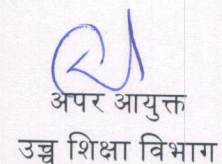 अपर आयुक्त
उच्च शिक्षा विभाग